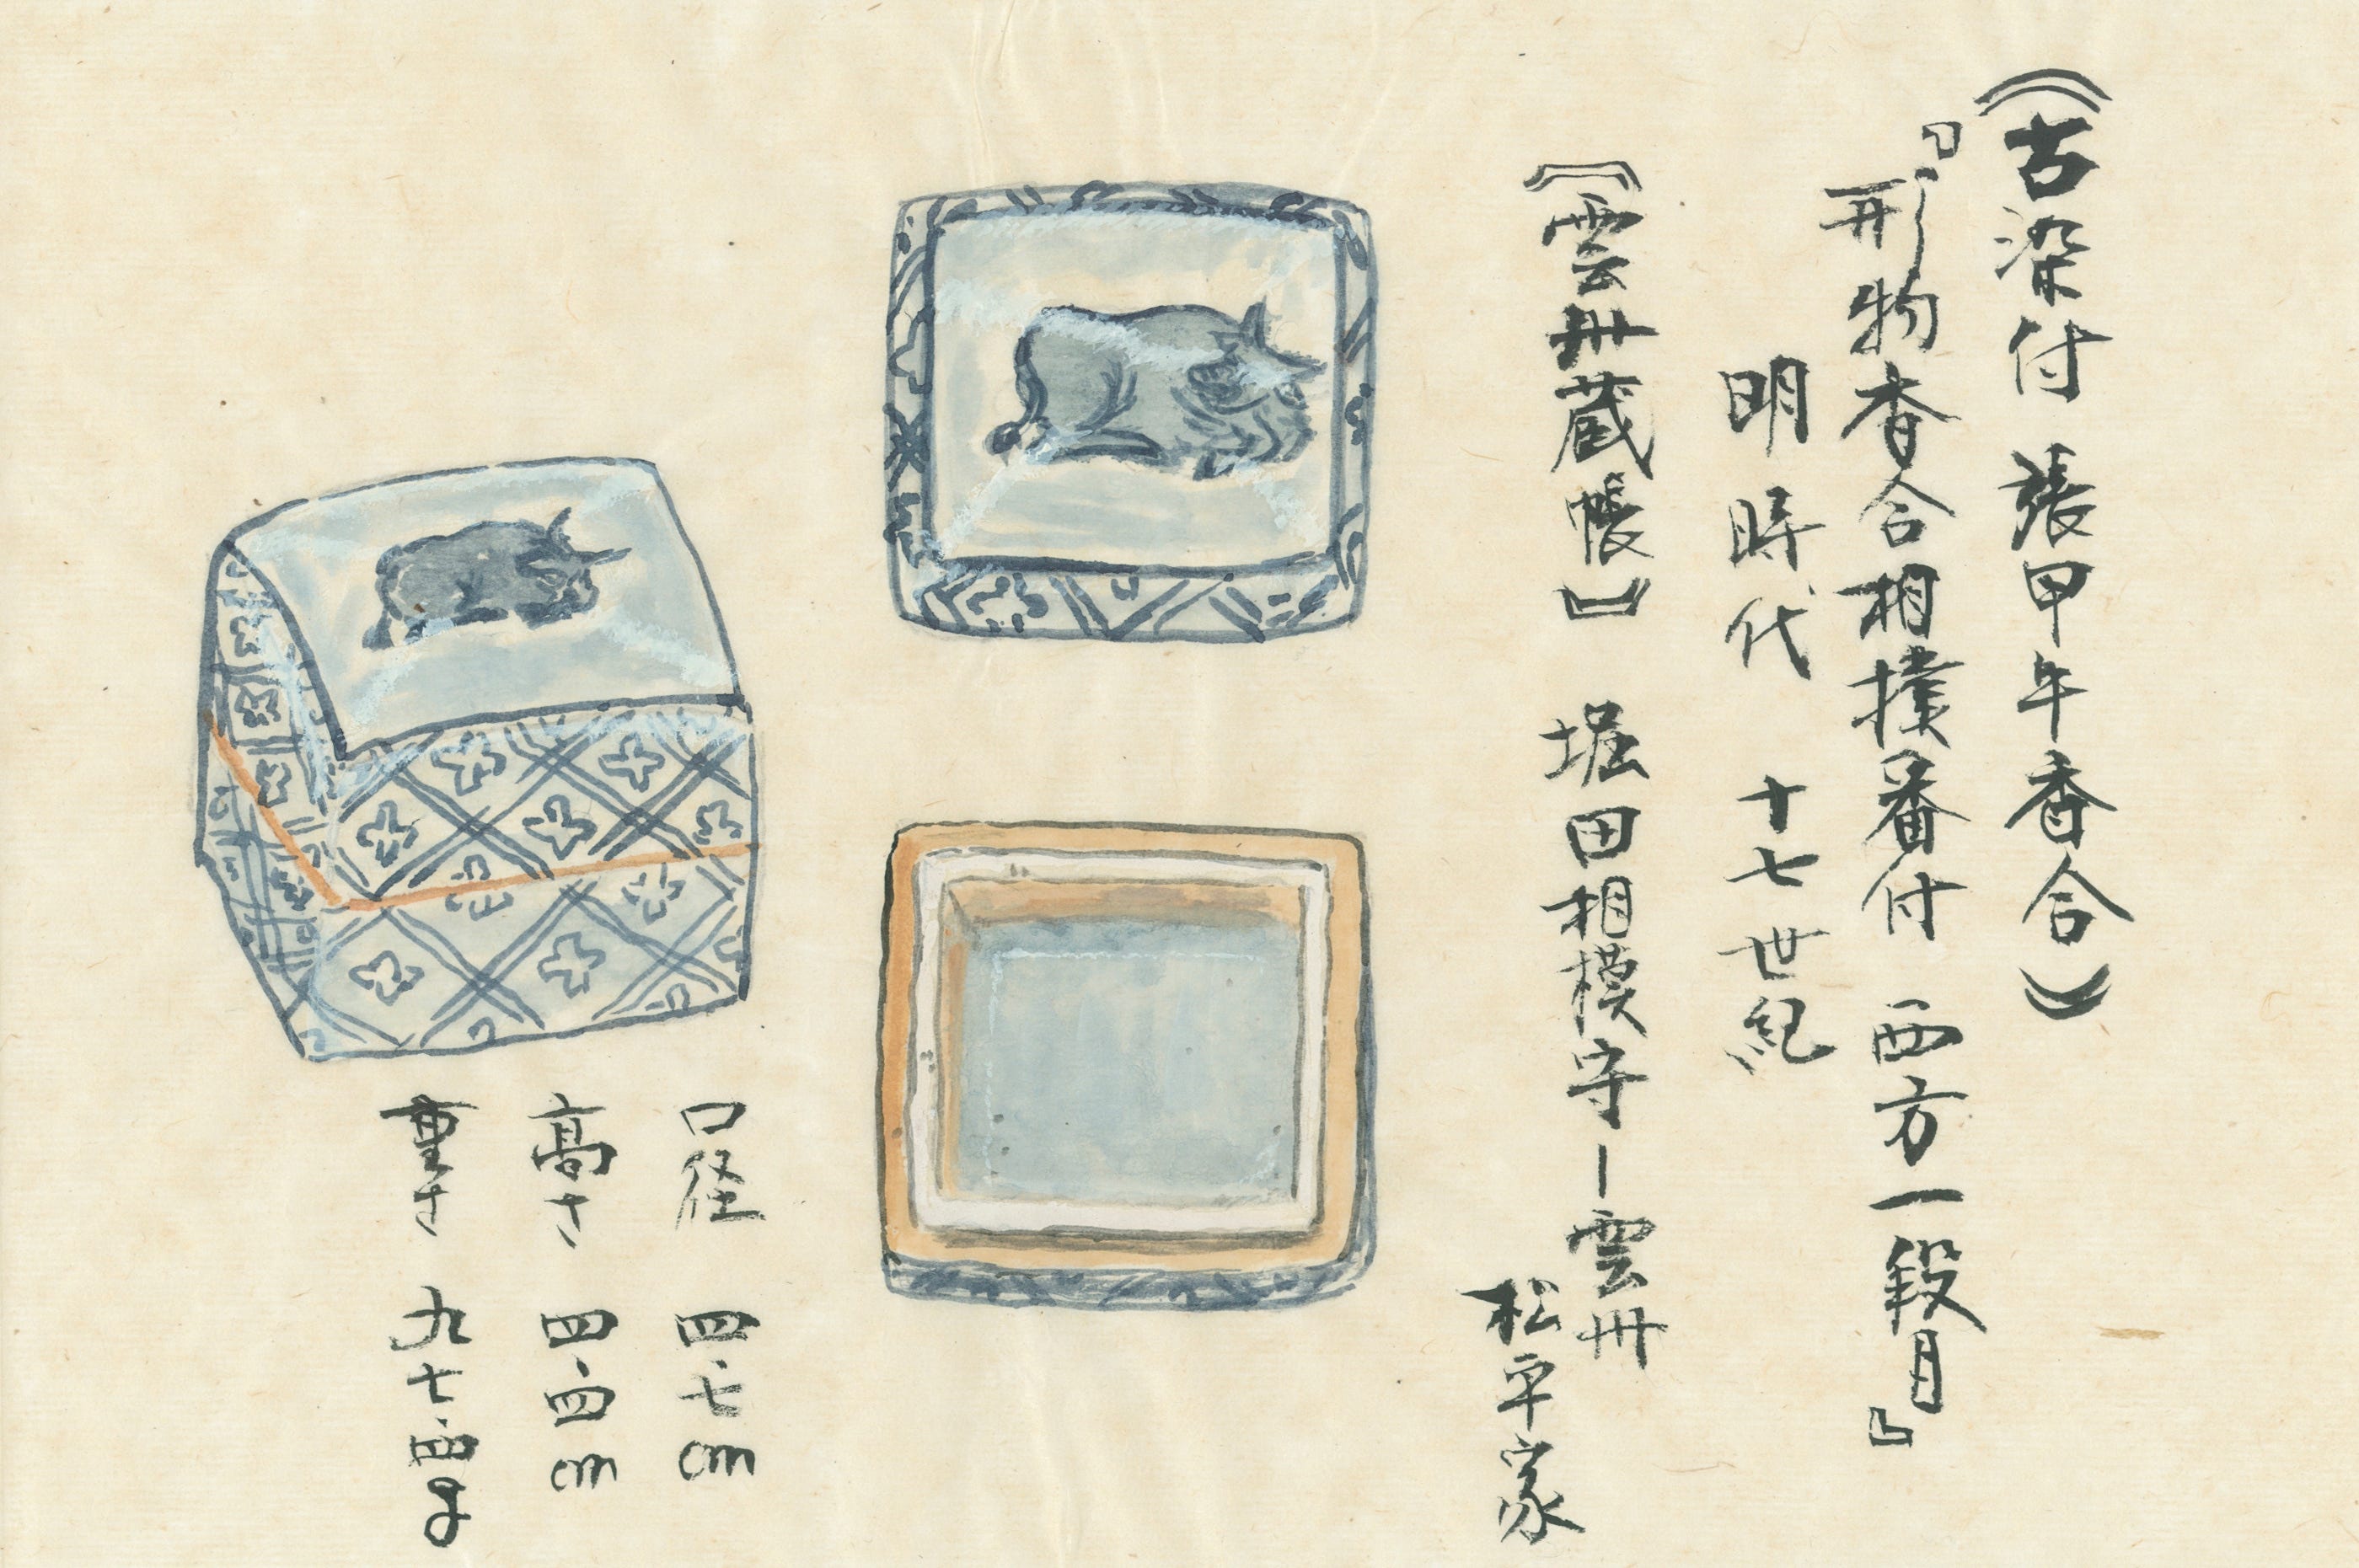 《古染付 張甲牛香合》
『形物香合相撲番付 西方一段目』
明時代 十七世紀
〖雲州蔵帳〗 堀田相模守ー雲州
松平家
口径 四.七cm
高さ 四.四cm
重さ 九七.四g